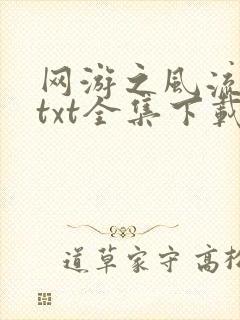 网游之风流
txt全集下载
道草家守 高松